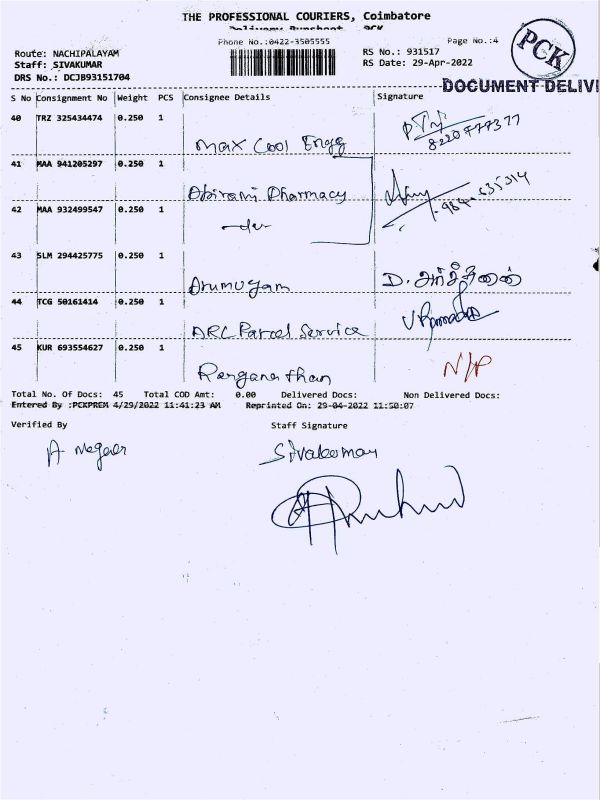 THE PROFESSIONAL COURIERS, Coimbatore
Delivery Runsheet PCK
Phone No.:0422-3505555
Page No.:4
PCK
Route: NACHIPALAYAM
RS No.: 931517
Staff: SIVAKUMAR
RS Date: 29-Apr-2022
DRS No.: DCJB93151704
DOCUMENT DELIVI
S No Consignment No Weight PCS Consignee Details Signature
40 TRZ 325434474 0.250 1
Max Cool Engg
8220777377
41 MAA 941205297 0.250 1
Abirami Pharmacy
42 MAA 932499547 0.250 1
43 SLM 294425775 0.250 1
Arumugam D.
44 TCG 50161414 0.250 1
ARC Parcel Service
45 KUR 693554627 0.250 1
Ranganathan N/P
Total No. Of Docs: 45 Total COD Amt: 0.00 Delivered Docs: Non Delivered Docs:
Entered By :PCKPREM 4/29/2022 11:41:23 AM Reprinted On: 29-04-2022 11:50:07
Verified By Staff Signature
Sivakumar